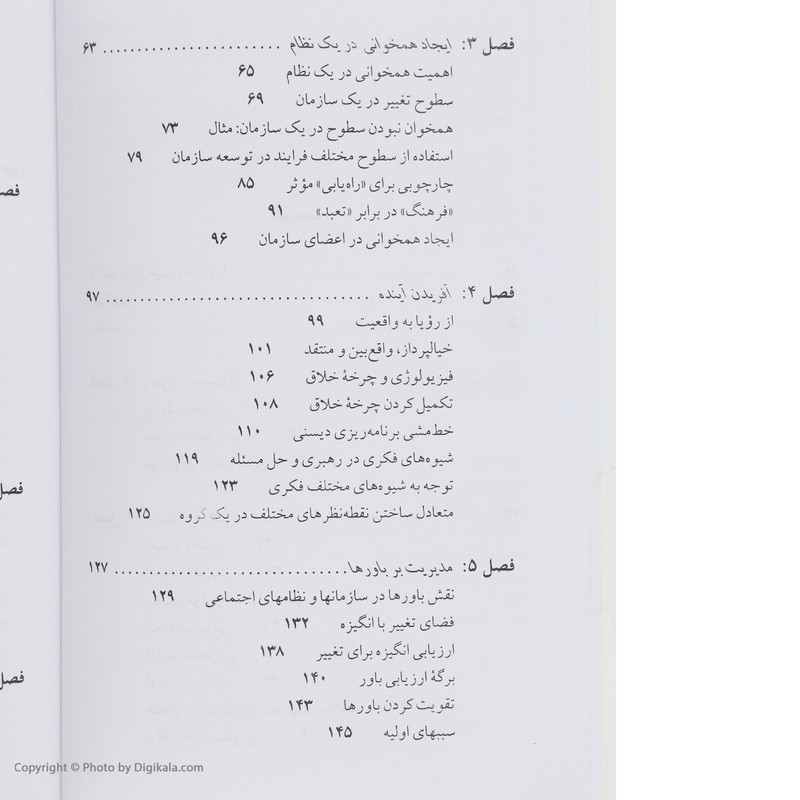 فصل ۳: ایجاد همخوانی در یک نظام ........................ ۶۳
اهمیت همخوانی در یک نظام ۶۵
سطوح تغییر در یک سازمان ۶۹
همخوان نبودن سطوح در یک سازمان: مثال ۷۳
استفاده از سطوح مختلف فرایند در توسعه سازمان ۷۹
چارچوبی برای «راه‌یابی» مؤثر ۸۵
«فرهنگ» در برابر «تعبد» ۹۱
ایجاد همخوانی در اعضای سازمان ۹۶
فصل ۴: آفریدن آینده .................................. ۹۷
از رؤیا به واقعیت ۹۹
خیالپرداز، واقع‌بین و منتقد ۱۰۱
فیزیولوژی و چرخهٔ خلاق ۱۰۶
تکمیل کردن چرخهٔ خلاق ۱۰۸
خط‌مشی برنامه‌ریزی دیسنی ۱۱۰
شیوه‌های فکری در رهبری و حل مسئله ۱۱۹
توجه به شیوه‌های مختلف فکری ۱۲۳
متعادل ساختن نقطه‌نظرهای مختلف در یک گروه ۱۲۵
فصل ۵: مدیریت بر باورها.............................. ۱۲۷
نقش باورها در سازمانها و نظامهای اجتماعی ۱۲۹
فضای تغییر با انگیزه ۱۳۲
ارزیابی انگیزه برای تغییر ۱۳۸
برگهٔ ارزیابی باور ۱۴۰
تقویت کردن باورها ۱۴۳
سببهای اولیه ۱۴۵
فصل
فصل
Copyright © Photo by Digikala.com